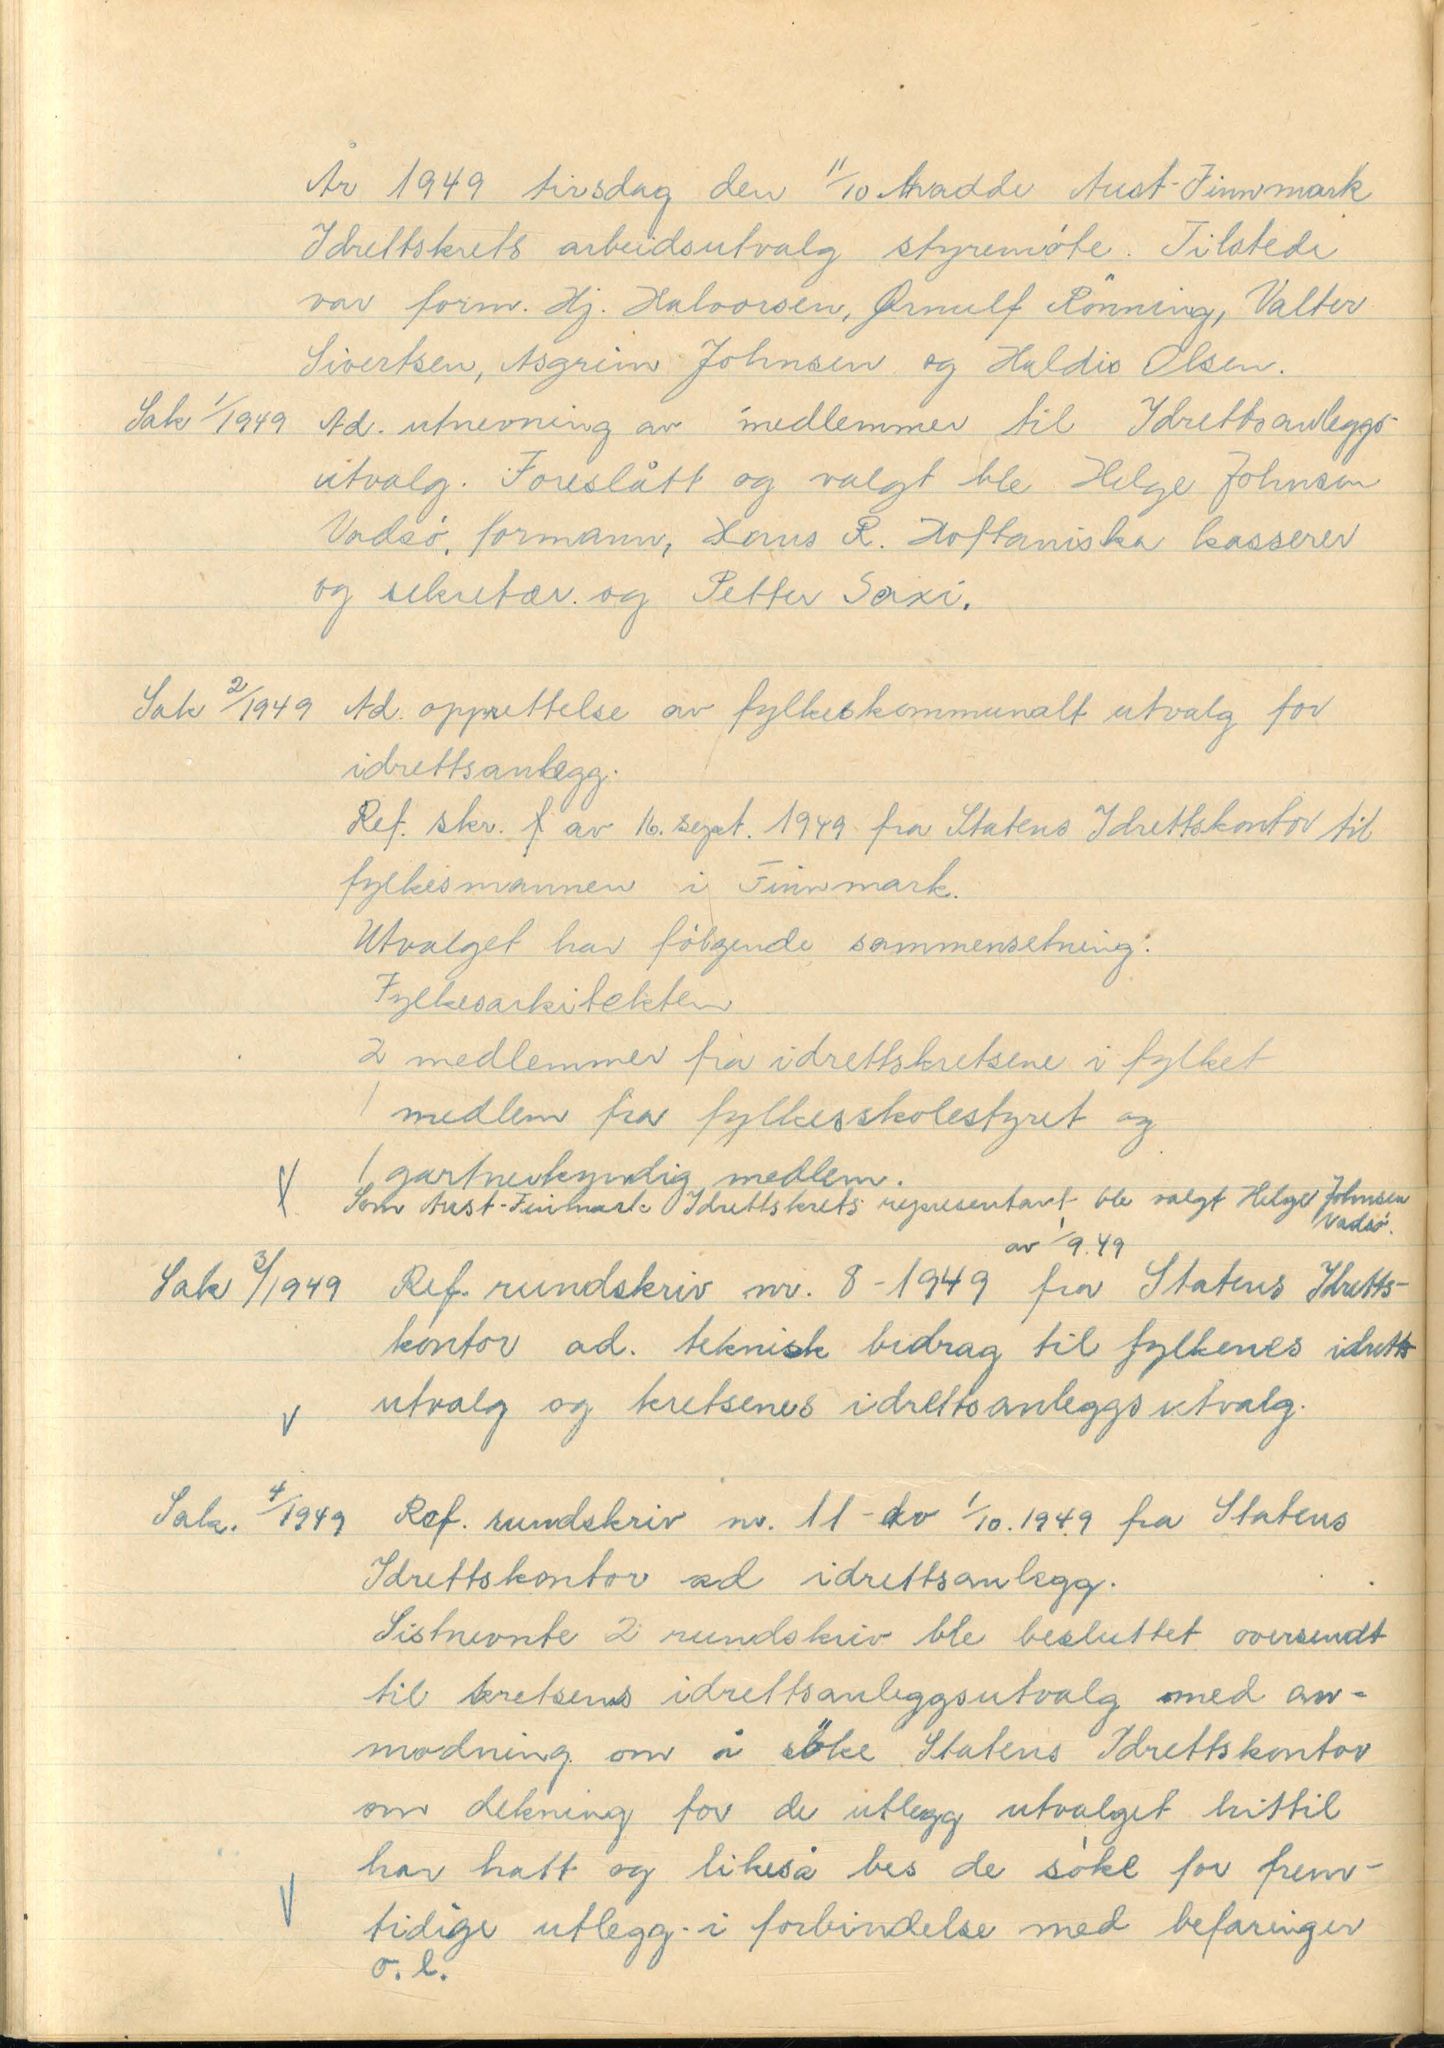 År 1949 tirsdag den 11/10 hadde Aust-Finnmark
Idrettskrets arbeidsutvalg styremöte. Tilstede
var form. Hj. Halvorsen, Ørnulf Rönning, Valter
Sivertsen, Asgrim Johnsen og Haldis Olsen.
Sak 1/1949 Ad. utnevning av medlemmer til Idrettsanleggs-
utvalg. Foreslått og valgt ble Helge Johnsen
Vadsö, formann, Hans R. Hoftaniska kasserer
og sekretær og Petter Saxi.
Sak 2/1949 Ad. opprettelse av fylkeskommunalt utvalg for
idrettsanlegg.
Ref. skr. av 16. sept. 1949 fra Statens Idrettskontor til
fylkesmannen i Finnmark.
Utvalget har fölgende sammensetning:
Fylkesarkitekten
2 medlemmer fra idrettskretsene i fylket
1 medlem fra fylkesskolestyret og
1 gartnerkyndig medlem.
Som Aust-Finmark Idrettskrets representant ble valgt Helge Johnsen
Vadsö.
av 1/9.49
Sak 3/1949 Ref. rundskriv nr. 8-1949 fra Statens Idretts-
kontor ad. teknisk bidrag til fylkenes idretts
utvalg og kretsenes idrettsanleggsutvalg.
Sak. 4/1949 Ref. rundskriv nr. 11 - av 1/10.1949 fra Statens
Idrettskontor ad idrettsanlegg.
Sistnevnte 2 rundskriv ble besluttet oversendt
til kretsens idrettsanleggsutvalg med an-
modning om å söke Statens Idrettskontor
om dekning for de utlegg utvalget hittil
har hatt og likeså bes de söke for frem-
tidige utlegg i forbindelse med befaringer
o. l.